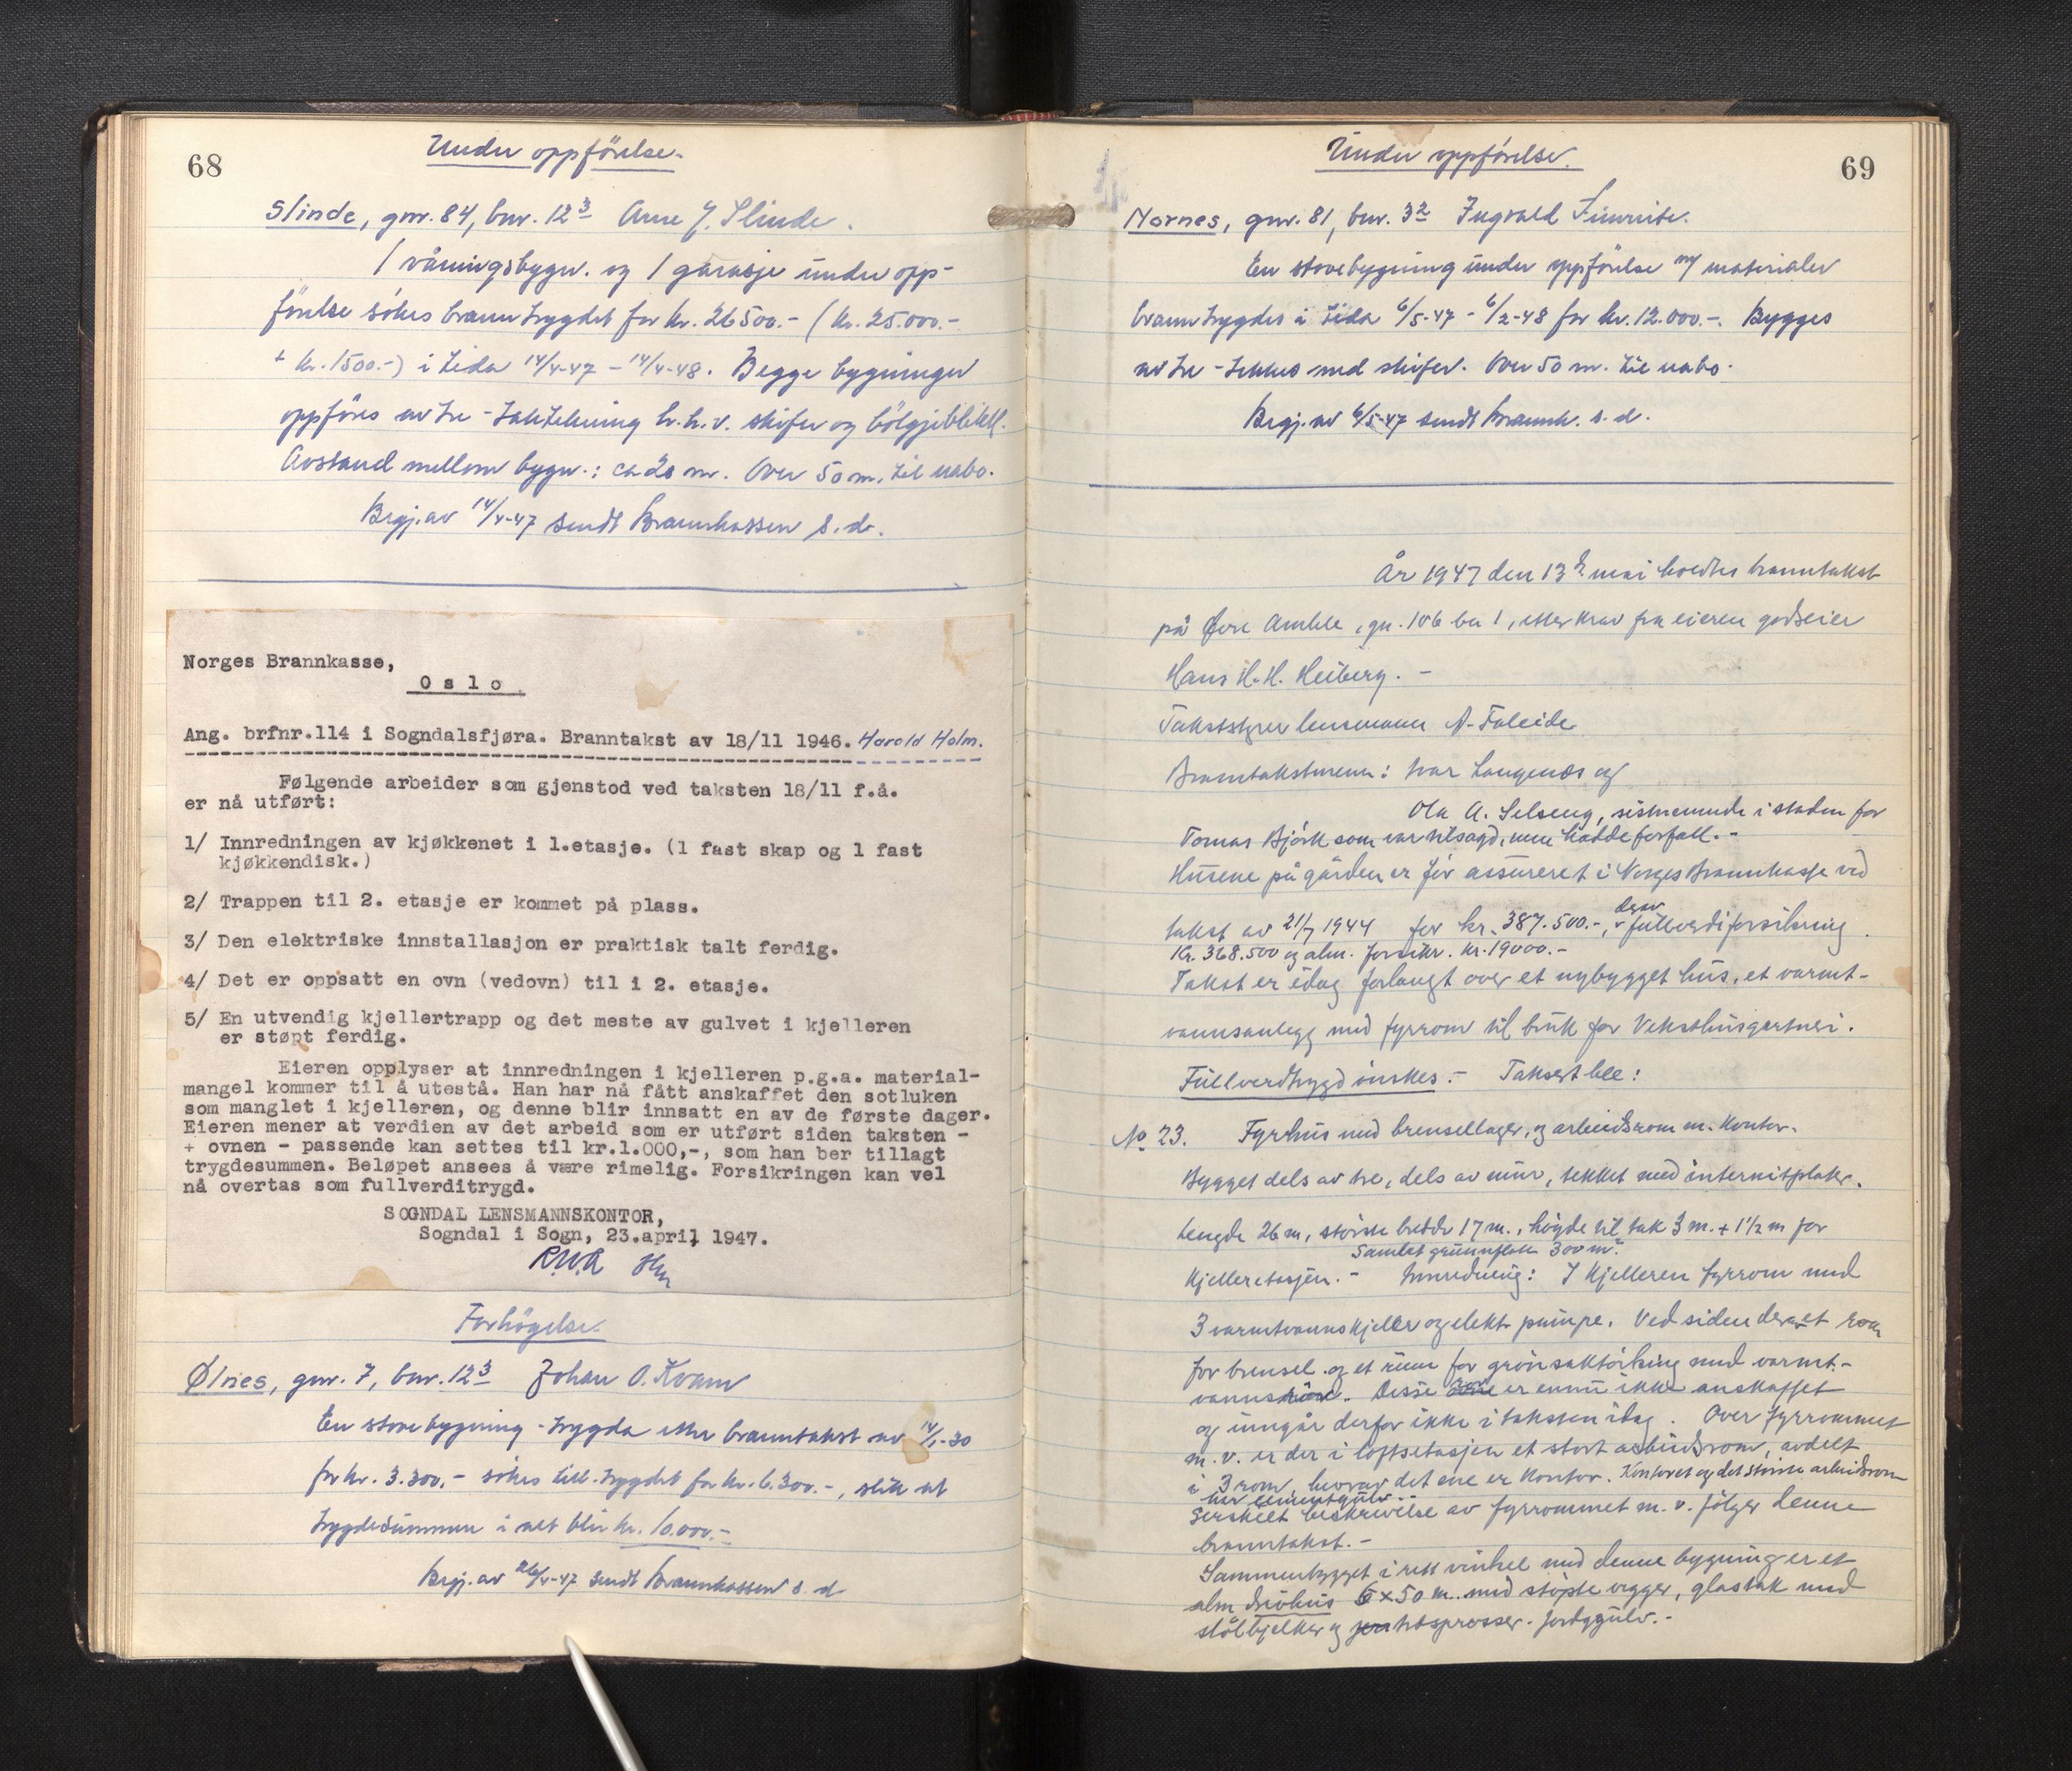 68
Under oppförelse.
Slinde, gnr. 84, bnr. 12³ Arne J. Slinde.
1 våningsbygn. og 1 garasje under opp-
förelse sökes branntrygdet for kr. 26500.- (kr. 25.000.-
+ kr. 1500.-) i tida 14/4-47 - 14/4-48. Begge bygninger
oppföres av tre - taktekning h.h.v. skifer og bölgjeblikk.
Avstand mellom bygn.: ca 20 m. Over 50 m. til nabo.
Begj. av 14/4-47 sendt Brannkassen s.d.
Norges Brannkasse,
Oslo.
Ang. brfnr.114 i Sogndalsfjøra. Branntakst av 18/11 1946. Harald Holm.
Følgende arbeider som gjenstod ved taksten 18/11 f.å.
er nå utført:
1/ Innredningen av kjøkkenet i 1.etasje. (1 fast skap og 1 fast
kjøkkendisk.)
2/ Trappen til 2. etasje er kommet på plass.
3/ Den elektriske innstallasjon er praktisk talt ferdig.
4/ Det er oppsatt en ovn (vedovn) til i 2. etasje.
5/ En utvendig kjellertrapp og det meste av gulvet i kjelleren
er støpt ferdig.
Eieren opplyser at innredningen i kjelleren p.g.a. material-
mangel kommer til å utestå. Han har nå fått anskaffet den sotluken
som manglet i kjelleren, og denne blir innsatt en av de første dager.
Eieren mener at verdien av det arbeid som er utført siden taksten -
+ ovnen - passende kan settes til kr.1.000,-, som han ber tillagt
trygdesummen. Beløpet ansees å være rimelig. Forsikringen kan vel
nå overtas som fullverditrygd.
SOGNDAL LENSMANNSKONTOR,
Sogndal i Sogn, 23.april 1947.
Forhögelse.
Ølnes, gnr. 7, bnr. 12³ Johan O. Kvam
En stovebygning - trygda etter branntakst av 14/1-30
for kr. 3.300.- sökes till.trygdet for kr. 6.300.-, slik at
trygdesummen i alt blir kr. 10.000.-
Begj. av 26/4-47 sendt Brannkassen s.d.
69
Under oppförelse.
Nornes, gnr. 81, bnr. 3² Ingvald Fimreite.
En stovebygning under oppförelse m/ materialer
branntrygdes i tida 6/5-47 - 6/2-48 for kr. 12.000.-. Bygges
av tre - tekkes med skifer. Over 50 m. til nabo.
Begj. av 6/5-47 sendt Brannk. s.d.
År 1947 den 13de mai holdtes branntakst
på Øvre Amble, gn. 106 bn 1, etter krav fra eieren godseier
Hans H.H. Heiberg. -
Takststyrer lensmann A. Faleide
Branntakstmenn: Ivar Langenæs og
Ola A. Selseng, sistnemnde i staden for
Tomas Bjórk som var tilsagd, men hadde forfall. -
Husene på gården er för assureret i Norges Brannkasse ved
takst av 21/7 1944 for kr. 387.500.-, derav fullverdiforsikring
Kr. 368.500 og alm. forsikr. kr. 19000.-
Takst er idag forlangt over et nybygget hus, et varmt-
vannsanlegg med fyrrom til bruk for Veksthusgartneri.
Fullverdtrygd ønskes. - Taksert ble:
No 23. Fyrhus med brensellager, og arbeidsrom m. kontor.
Bygget dels av tre, dels av mur, tekket med internitplater.
Lengde 26 m, störste bredde 17 m., högde til tak 3 m. + 1½ m for
Samlet grunnflate 300 m².
Kjelleretasjen. - Innredning: I Kjelleren fyrrom med
3 varmtvannskjeler og elekt. pumpe. Ved siden derav et rom
for brensel og et rum for grönsaktörking med varmt-
vannsrör. Disse er ennu ikke anskaffet
og inngår derfor ikke i taksten idag. Over fyrrommet
m.v. er der i loftsetasjen et stort arbeidsrom, avdelt
i 3 rom, hvorav det ene er kontor. Kontoret og det störste arbeidsrom
har cementgulv. -
Serskilt beskrivelse av fyrrommet m.v. fölger denne
branntakst. -
Sammenbygget i rett vinkel med denne bygning er et
alm. drivhus 6 x 50 m. med stöpte vegger, glastak med
stålbjelker og tresprosser. Jordgulv. -